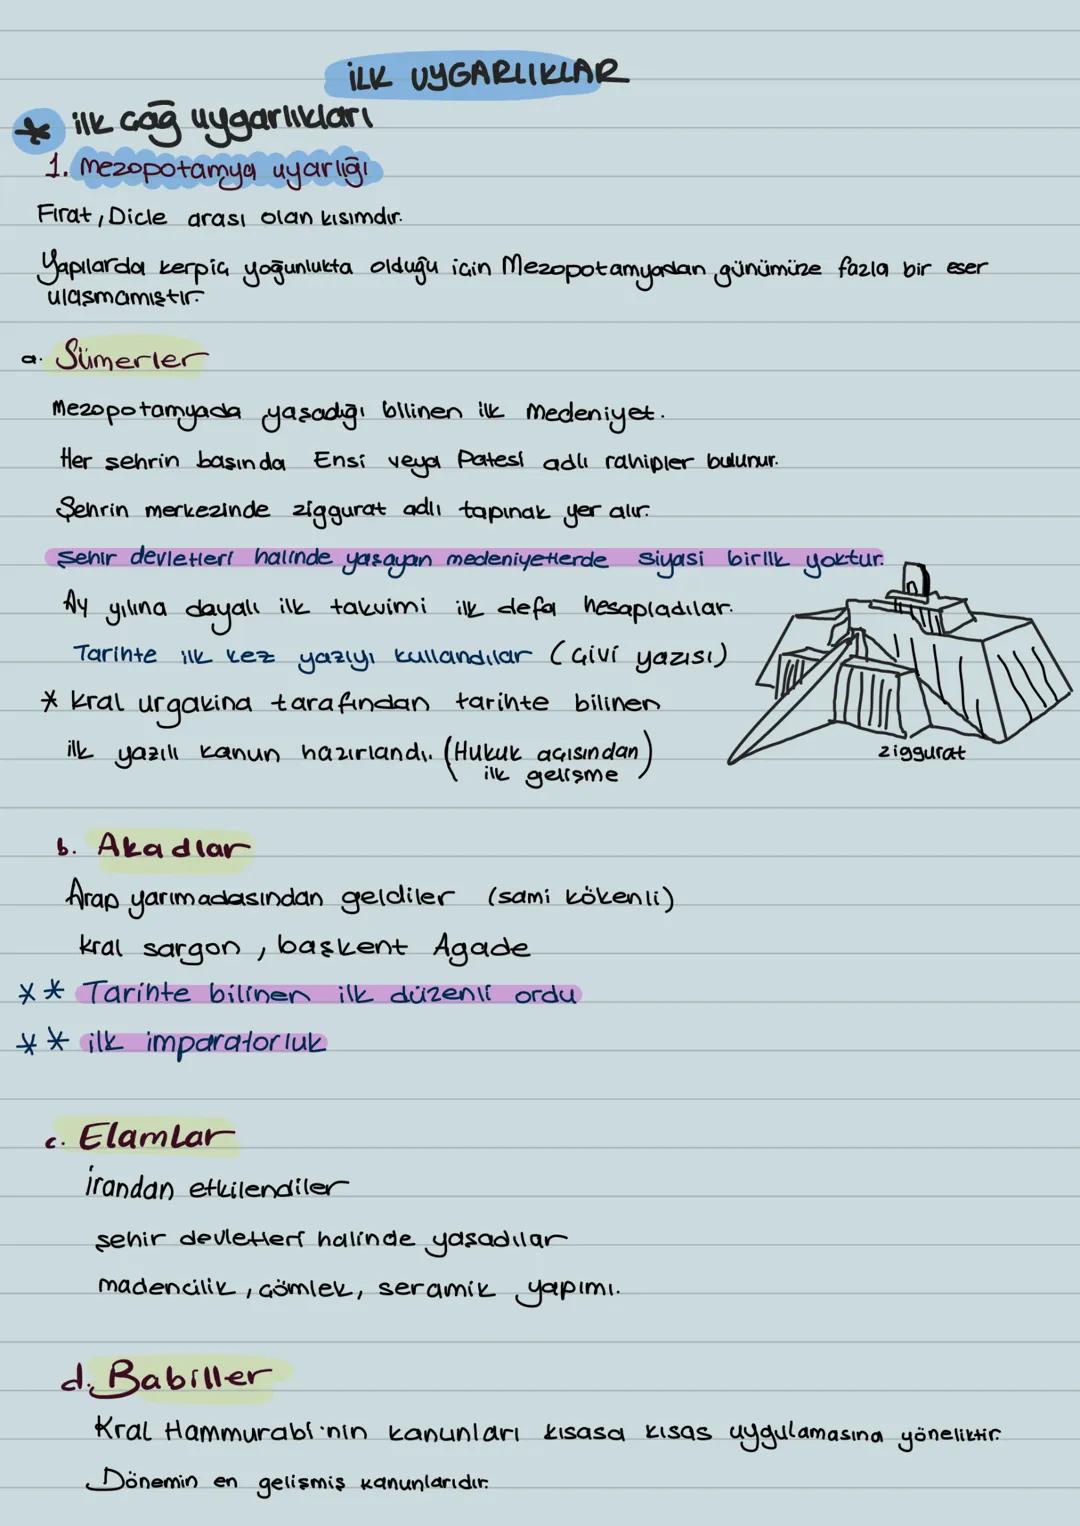 İLK UYGARLIKLAR
* ilk çağ uygarlıkları
1. Mezopotamya uyarlığı
Fırat, Dicle arası olan kısımdır.
Yapılarda kerpiç yoğunlukta olduğu için Mezopotamyadan günümüze fazla bir eser
ulaşmamıştır.
a. Sümerler
Mezopotamyada yaşadığı bilinen ilk Medeniyet.
Her şehrin başında Ensi veya Patesi adlı rahipler bulunur.
Şehrin merkezinde ziggurat adlı tapınak yer alır.
şehir devletleri halinde yaşayan medeniyetlerde siyasi birlik yoktur.
Ay yılına dayalı ilk takvimi ilk defa hesapladılar.
Tarihte ilk kez yazıyı kullandılar (Çivi yazısı)
* Kral urgakina tarafından tarihte bilinen
ilk yazılı kanun hazırlandı. (Hukuk açısından
ilk gelişme)
ziggurat
b. Akadlar
Arap yarımadasından geldiler (sami kökenli)
kral sargon, başkent Agade
** Tarihte bilinen ilk düzenli ordu
** ilk imparatorluk
c. Elamlar
İrandan etkilendiler
şehir devletleri halinde yaşadılar
madencilik, çömlek, seramik yapımı.
d. Babiller
Kral Hammurabi'nin kanunları kısasa kısas uygulamasına yöneliktir.
Dönemin en gelişmiş kanunlarıdır.